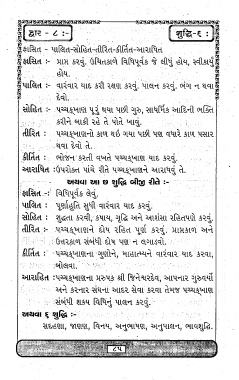 દ્વાર - ૮ : -
શુદ્ધિ-૬ :
ફાસિત - પાલિત-સોહિત-તીરિત-કીર્તિત-આરાધિત
ફાસિત : - પ્રાપ્ત કરવું. ઉચિતકાળે વિધિપૂર્વક જે લીધું હોય, સ્વીકાર્યું
હોય.
પાલિત : - વારંવાર યાદ કરી રક્ષણ કરવું. પાલન કરવું. ભંગ ન થવા
દેવો.
સોહિત : - પચ્ચક્ખાણ પુરું થયા પછી ગુરુ, સાધર્મિક આદિની ભક્તિ
કરીને બાકી રહે તે પોતે ખાવું.
તીરિત : - પચ્ચક્ખાણનો કાળ થઈ ગયા પછી પણ વધારે કાળ પસાર
થવા દેવો તે.
કીર્તિત : - ભોજન કરતી વખતે પચ્ચક્ખાણ યાદ કરવું.
આરાધિત : ઉપરોક્ત પાંચે રીતે પચ્ચક્ખાણને આરાધવું તે.
અથવા આ છ શુદ્ધિ બીજી રીતે :-
ફાસિત - : વિધિપૂર્વક લેવું.
પાલિત : પૂર્ણાહુતિ સુધી વારંવાર યાદ કરવું.
સોહિત : શુદ્ધતા કરવી, કષાય, ગૃદ્ધિ અને આશંસા રહિતપણે કરવું.
તીરિત : - પચ્ચક્ખાણને દોષ રહિત પૂર્ણ કરવું. પ્રાપ્રકાળ અને
ઉત્તરકાળ સંબંધી દોષ પણ ન લગાડવો.
કીર્તિત : પચ્ચક્ખાણના ગુણોને, માહાત્મ્યને વારંવાર યાદ કરવા,
બોલવા.
આરાહિત : પચ્ચક્ખાણના પ્રરુપક શ્રી જિનેશ્વરદેવ, આપનાર ગુરુવર્યો
અને કરનાર સંઘના આદર સેવા કરવા તેમજ પચ્ચક્ખાણ
સંબંધી શક્ય વિધિનું પાલન કરવું.
અથવા ૬ શુદ્ધિ :-
સદહણા, જાણણ, વિનય, અનુભાષણ, અનુપાલન, ભાવશુદ્ધિ.
૮૫